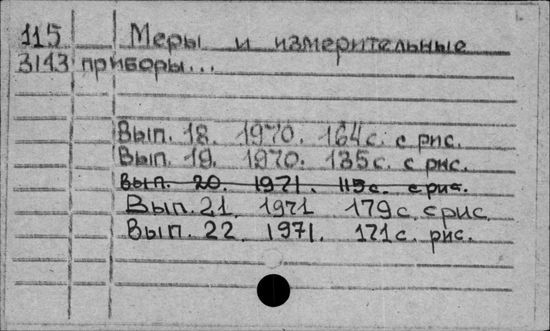 115 Меры и измерительные
3143 приборы...
Вып. 18. 1970. 164с. с рис.
Вып. 19. 1970. 135с. с рис.
Вып. 20. 1971. 115с. с рис.
Вып. 21. 1971 179с. с рис.
Вып. 22. 1971. 171с. рис.